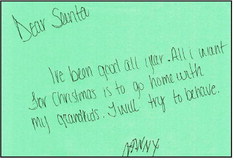 Dear Santa
Ive been good all year. All i want
for Christmas is to go home with
my grandkids. I will try to behave.